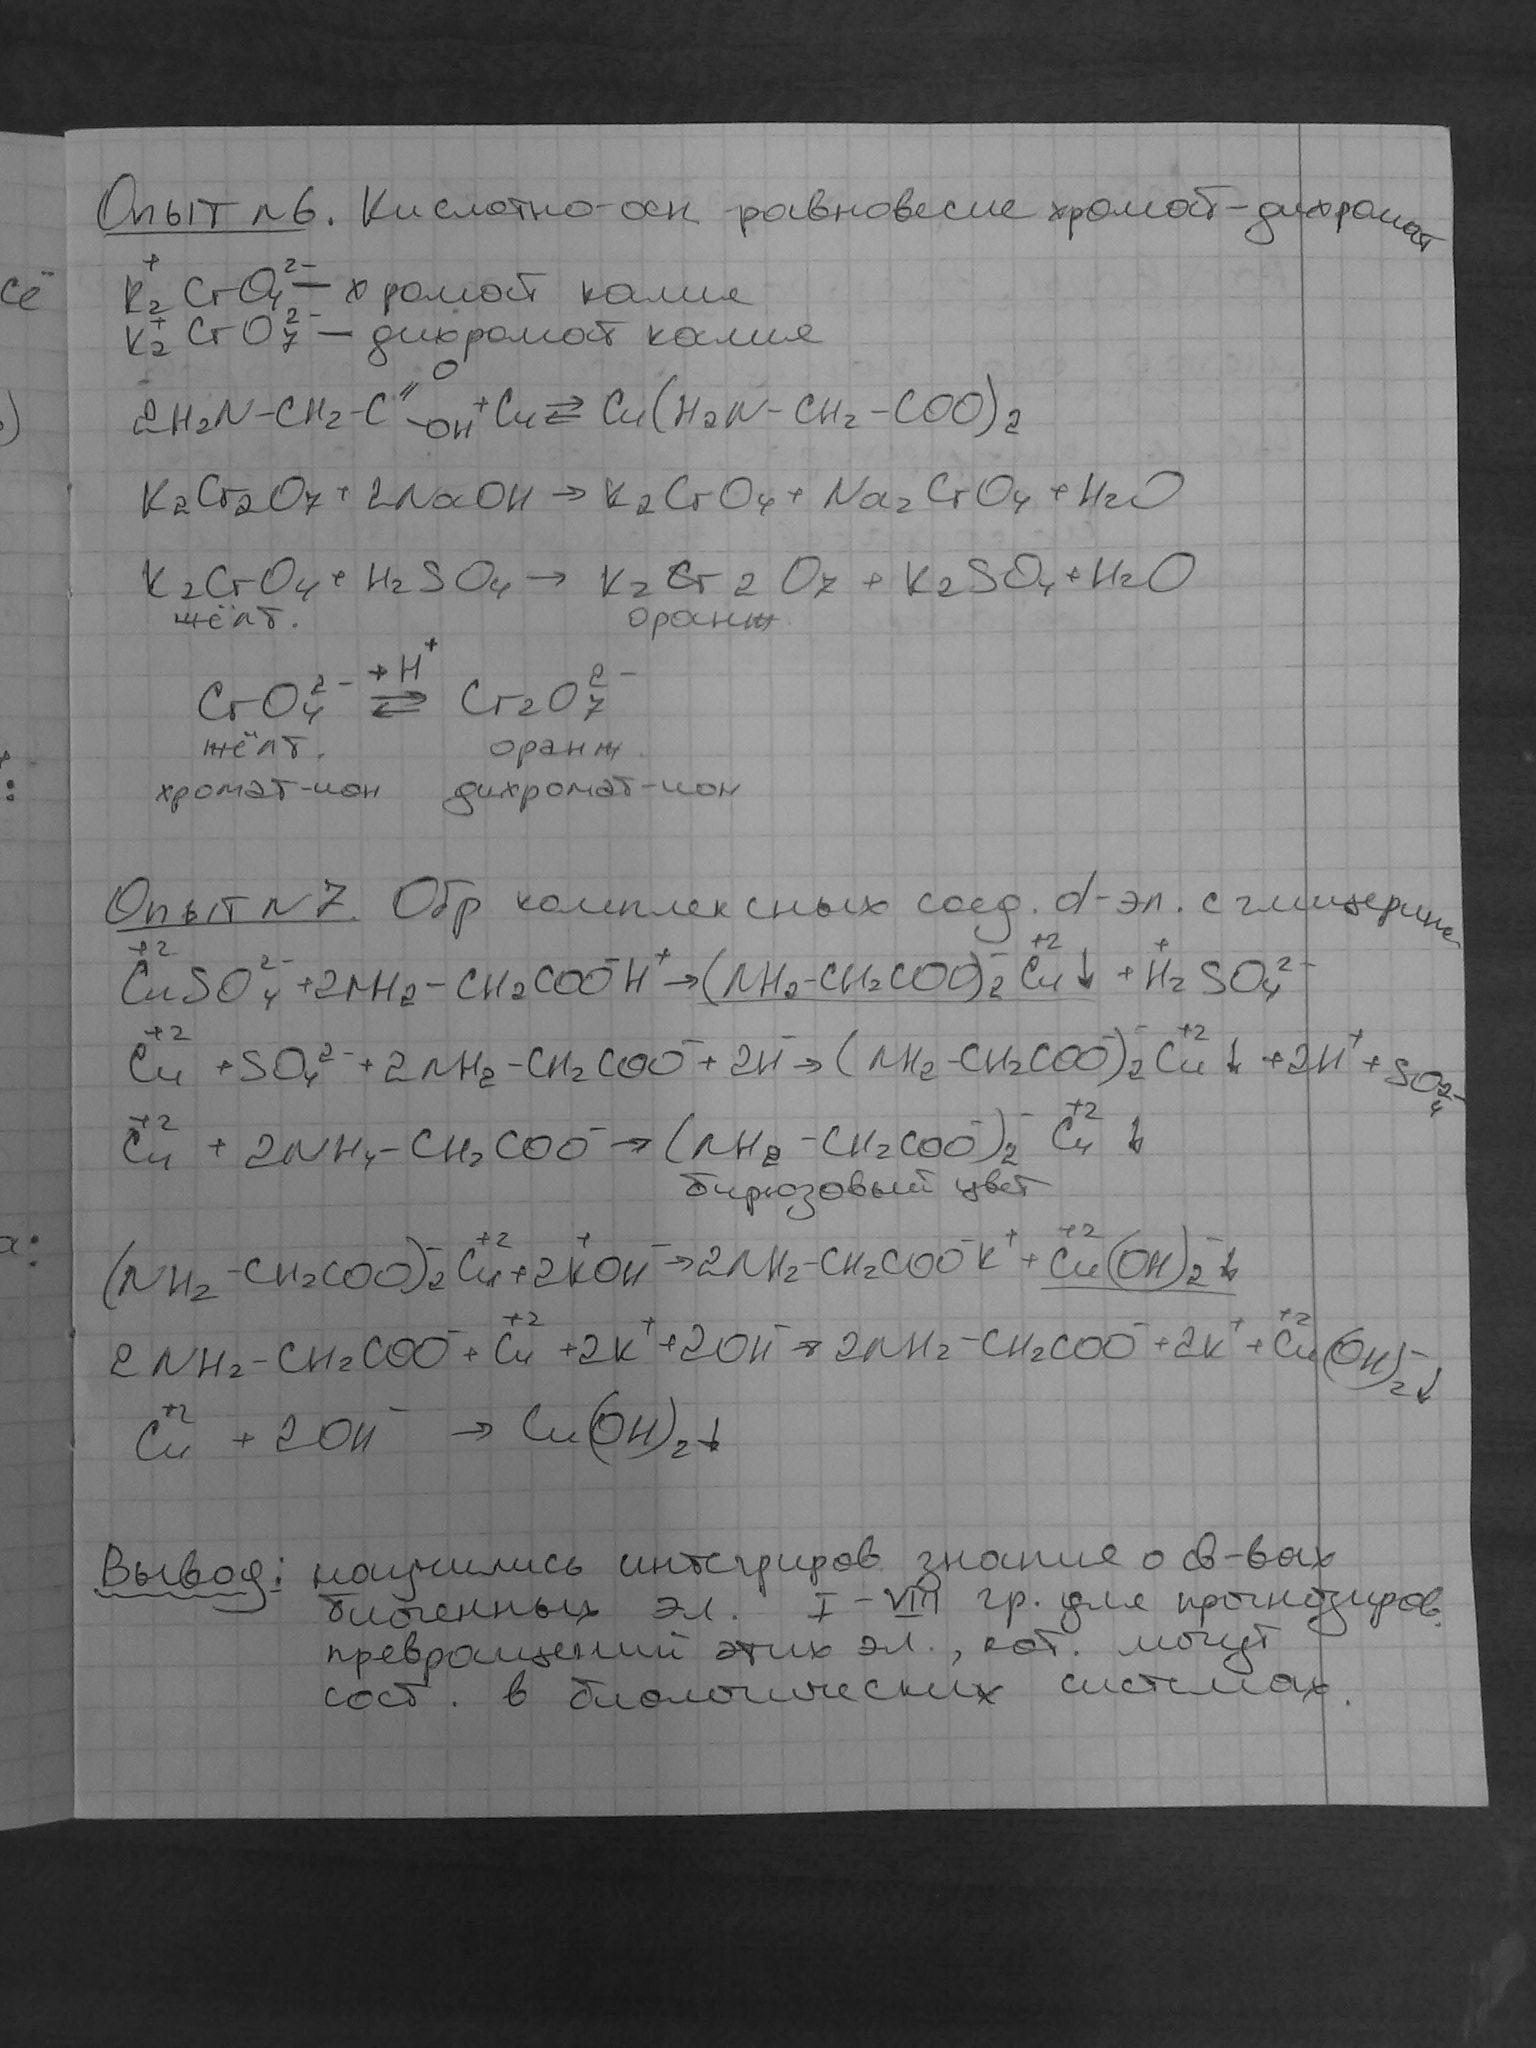 сё
Опыт №6. Кислотно-осн. равновесие хромат-дихромат
K₂⁺CrO₄²⁻ — хромат калия
K₂⁺CrO₇²⁻ — дихромат калия
2H₂N-CH₂-C(=O)-OH + Cu ⇌ Cu(H₂N-CH₂-COO)₂
K₂Cr₂O₇ + 2NaOH → K₂CrO₄ + Na₂CrO₄ + H₂O
K₂CrO₄ + H₂SO₄ → K₂Cr₂O₇ + K₂SO₄ + H₂O
жёлт. оранж.
+H⁺
CrO₄²⁻ ⇌ Cr₂O₇²⁻
жёлт. оранж.
хромат-ион дихромат-ион
Опыт №7. Обр комплексных соед. d-эл. с глицерине
Cu⁺²SO₄²⁻ + 2NH₂-CH₂COO⁻H⁺ → (NH₂-CH₂COO)₂⁻Cu⁺²↓ + H₂⁺SO₄²⁻
Cu⁺² + SO₄²⁻ + 2NH₂-CH₂COO⁻ + 2H⁻ → (NH₂-CH₂COO⁻)₂⁻Cu⁺²↓ + 2H⁺ + SO₄²⁻
Cu⁺² + 2NH₄-CH₂COO⁻ → (NH₂-CH₂COO⁻)₂⁻Cu⁺²↓
бирюзовый цвет
(NH₂-CH₂COO)₂⁻Cu⁺² + 2K⁺OH⁻ → 2NH₂-CH₂COO⁻K⁺ + Cu⁺²(OH)₂⁻↓
2NH₂-CH₂COO⁻ + Cu⁺² + 2K⁺ + 2OH⁻ → 2NH₂-CH₂COO⁻ + 2K⁺ + Cu⁺²(OH)₂⁻↓
Cu⁺² + 2OH⁻ → Cu(OH)₂↓
Вывод: научились интегриров. знания о св-вах
биогенных эл. I-VIII гр. для прогнозиров.
превращений этих эл., кот. могут
сост. в биологических системах.